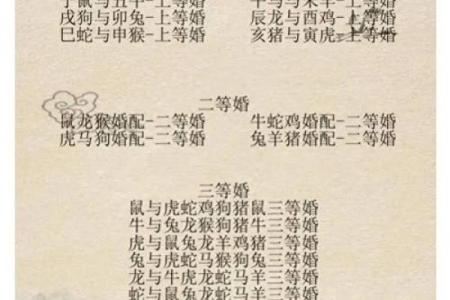 子鼠与丑牛-上等婚 午马与未羊-上等婚
戌狗与卯兔-上等婚 辰龙与酉鸡-上等婚
巳蛇与申猴-上等婚 亥猪与寅虎-上等婚
二等婚
鼠龙猴婚配-二等婚 牛蛇鸡婚配-二等婚
虎马狗婚配-二等婚 兔羊猪婚配-二等婚
三等婚
鼠与虎蛇鸡狗猪鼠三等婚
牛与兔龙猴狗猪虎三等婚
虎与鼠兔龙羊鸡猪三等婚
兔与虎蛇马猴狗兔三等婚
龙与牛虎龙蛇马羊三等婚
蛇与鼠兔龙蛇马羊三等婚